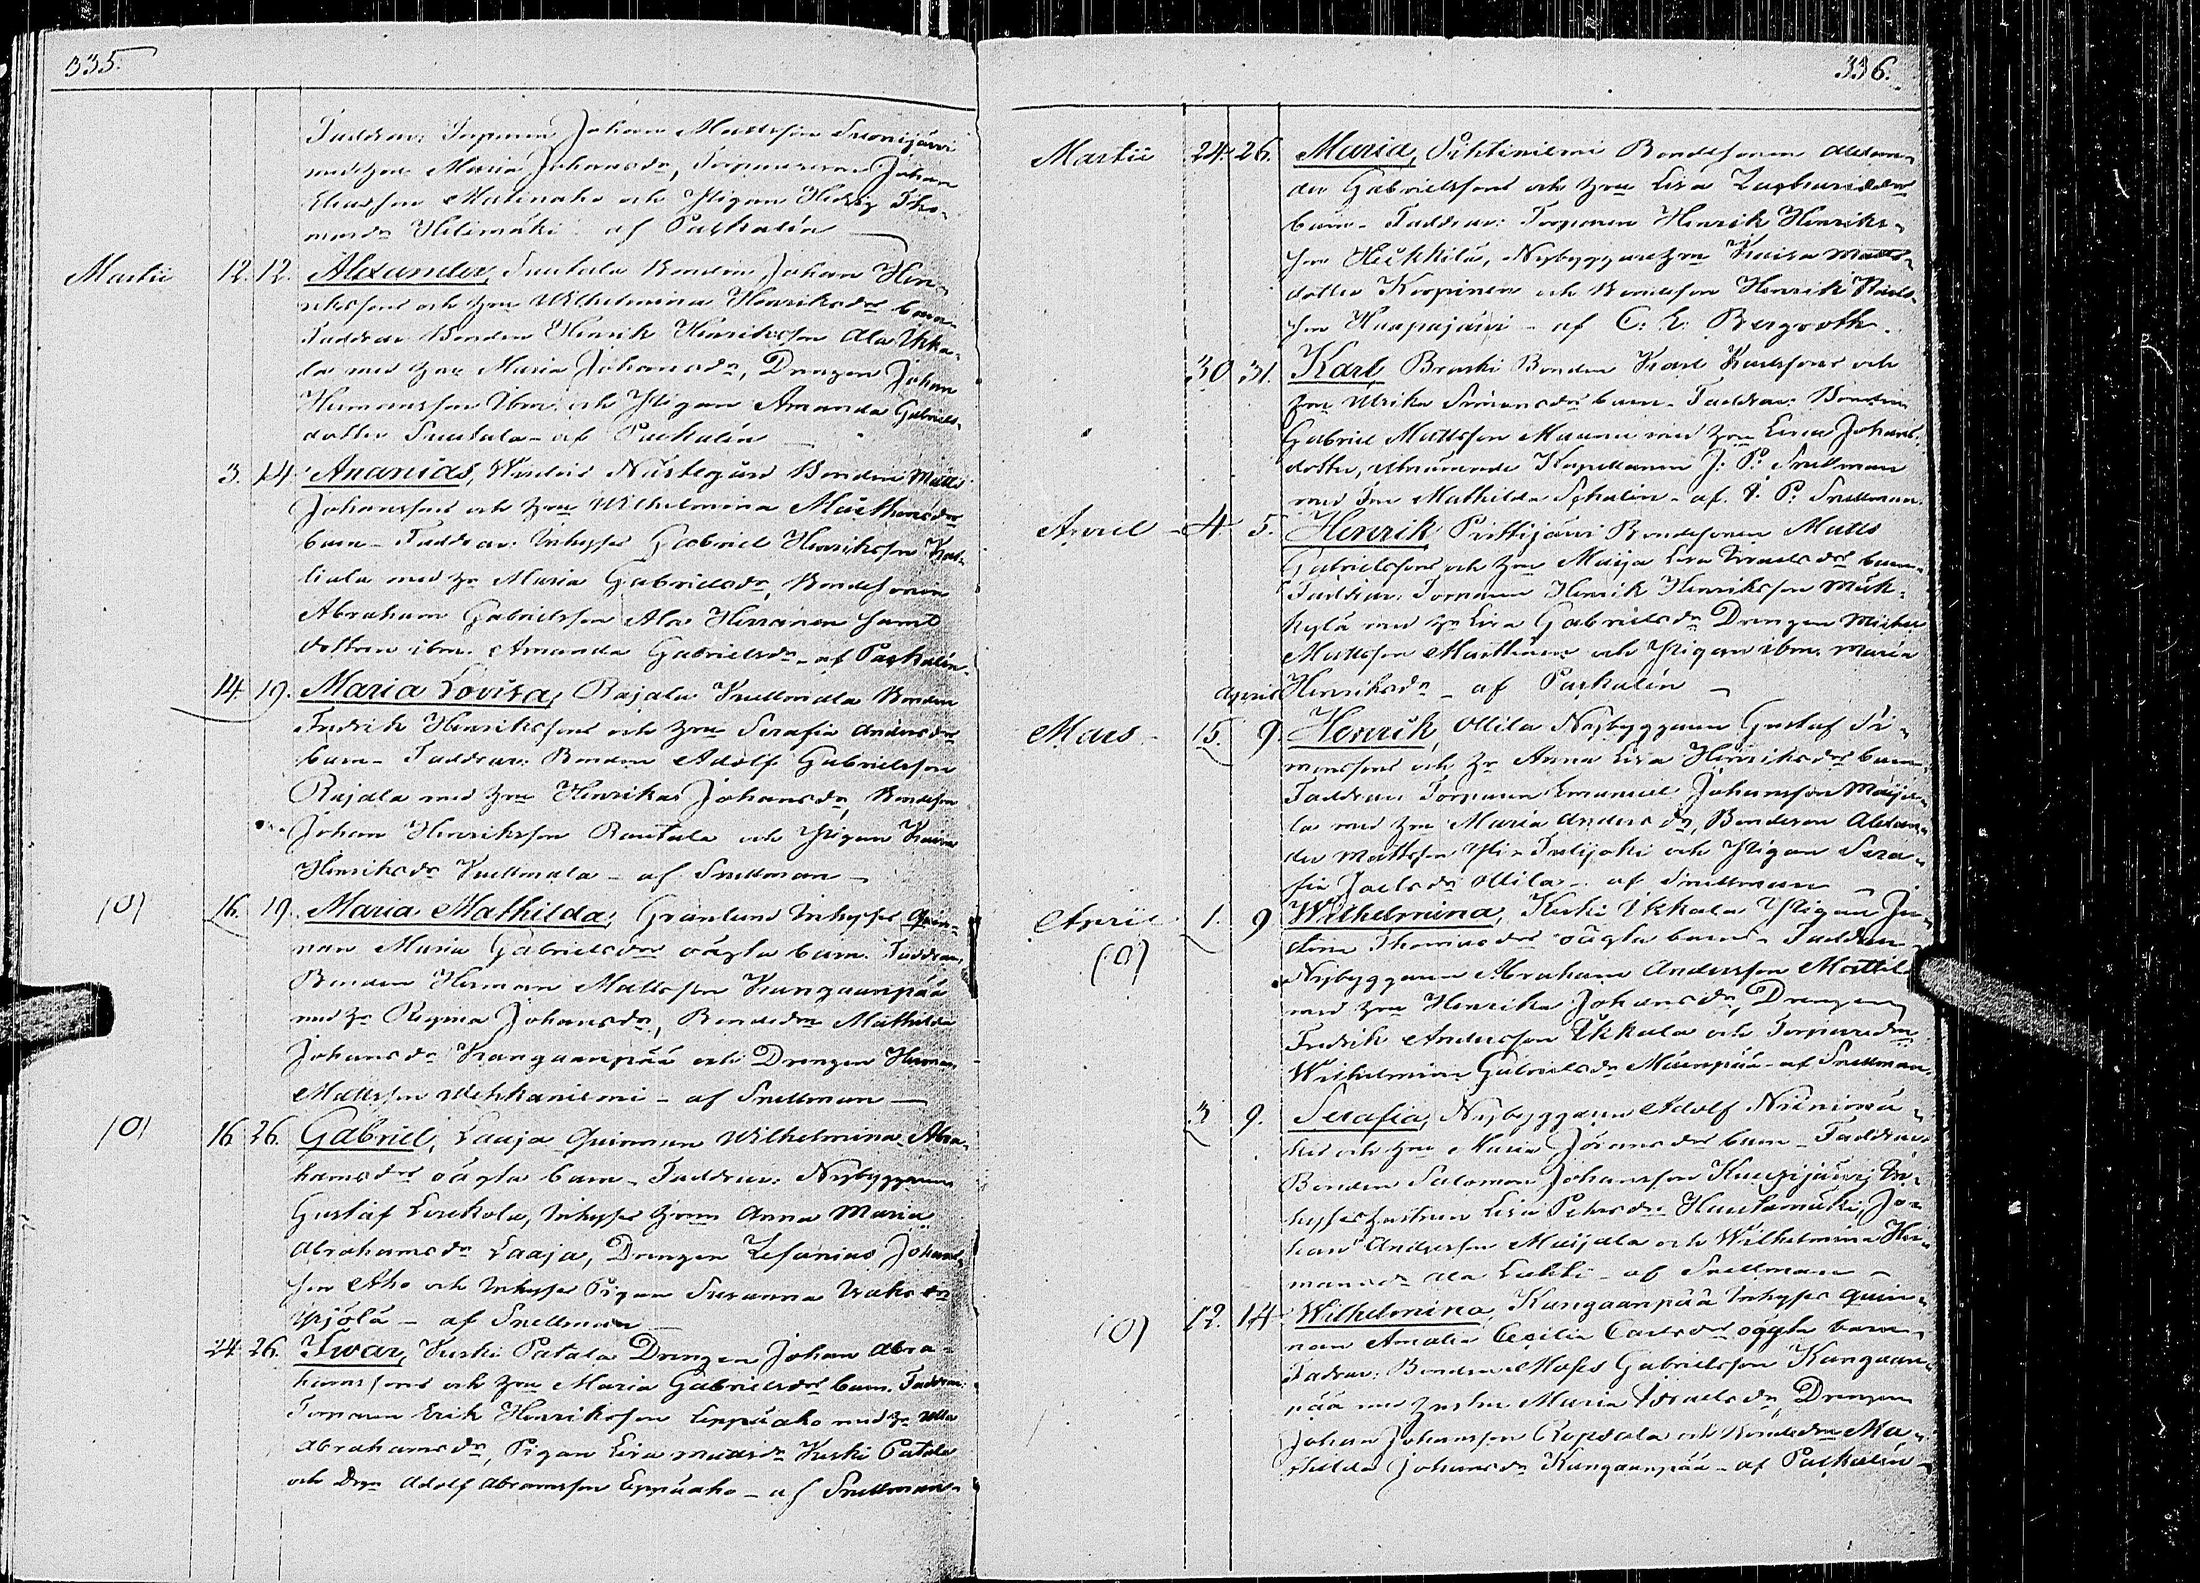 335.
Faddrar: Torparen Johan Mattsson Suonijärvi
med hon Maria Johansdr, Torparesonen Johan
Eliasson Matinaho och Pigan Hedvig Tho-
masdr Hilimäki - af Paskalin
Martii 12. 12. Alexander, Luutala Bonden Johan Hen-
rikssons och hru Wilhelmina Henriksdrs barn
Faddrar Bonden Henrik Henriksson Ala Ukko-
la med hru Maria Johansdr, Drengen Johan
Hermansson ibm. och Pigan Amanda Gabriels-
dotter Luutala - af Paskalin
3. 14 Ananias, Nästegård Bonden Matts
Johanssons och hru Wilhelmina Matthusdrs
barn - Faddrar: Inhyses Gabriel Henriksson
liala med hr Maria Gabrielsdr, Bondesonen
Abraham Gabrielsson Ala Hirvinen samt
dottren ibm. Amanda Gabrielsdr - af Paskalin
14. 19. Maria Lovisa, Rajala Knuttonala Bonden
Fredrik Henrikssons och hru Serafia Andersdrs
barn - Faddrar: Bonden Adolf Gabrielsson
Rajala med hru Henrika Johansdr, Bondeson
Johan Henriksson Rautala och Pigan Kaisa
Henriksdr Knuttonala - af Snellman -
(0) 16. 19. Maria Mathilda, Grönlund Inhyses Quin-
nan Maria Gabrielsdrs oägta barn. Faddrar,
Bonden Herman Mattsson Kangaanpää
med hr Regina Johansdr, Bondedn Mathilda
Johansdr Kangaanpää och Drengen Herman
Mattsson Wehkaniemi - af Snellman -
(0) 16 26. Gabriel, Laaja Quinnan Wilhelmina Abra-
hamsdrs oägta barn - Faddrar: Nybyggaren
Gustaf Leukola, Inhyses hrun Anna Maria
Abrahamsdr Laaja, Drengen Zefanias Johans-
son Aho och Inhyses Pigan Susanna Isaksdr
- af Snellman
24 26. Iwar, Keski Patala Drengen Johan Abra-
hamssons och hru Maria Gabrielsdrs barn. Faddrar:
Torparen Erik Henriksson Leppäaho med hr Ulla
Abrahamsdr, Pigan Lisa Mattsdr Keski Patala
och Drn Adolf Abramsson Leppäaho - af Snellman -
336.
Martii 24 26. Maria, Sihtiniemi Bondesonen Alexan-
der Gabrielssons och hru Lisa Zachariedtrs
barn - Faddrar: Torparen Henrik Henriks-
son Heikkilä, Nybyggarehru Kaisa Matts-
dotter Korpinen och Bondeson Henrik Karls-
son Haapajärvi - af C. E. Bergroth.
30 31. Karl, Braski Bonden Karl Karlssons och
hru Ulrika Simonsdrs barn - Faddrar: Bonden
Gabriel Mattsson Maunu med hru Lena Johans-
dotter, Kapellanen J. P. Snellman
med fru Mathilda Schalin - af J. P. Snellman
April - 4. 5. Henrik Pirttijärvi Bondesonen Matts
Gabrielssons och hru Maija Lisa Israelsdrs barn -
Faddrar: Torparen Henrik Henriksson Mäk-
kylä med hr Lisa Gabrielsdr Drengen Michel
Mattsson Marttinen och Pigan ibm. Maria
Henriksdr - af Paskalin -
April
Mars - 15. 9. Henrik, Ollila Nybyggaren Gustaf Si-
monssons och hr Anna Lisa Henriksdrs barn
Faddrar Torparen Emanuel Johansson Maija-
la med hru Maria Andersdr, Bondeson Alexan-
der Mattsson Yli-Tulijoki och Pigan Sera-
fia Joelsdr Ollila - af Snellman -
April 1. 9 Wilhelmina, Keski Ukkola Pigan Ju-
(0) stina Thomasdrs oägta barn - Faddrar
Nybyggaren Abraham Andersson Mattila
med hru Henrika Johansdr, Drengen
Fredrik Andersson Ukkola och Torparedn
Wilhelmina Gabrielsdr Mäenpää - af Snellman.
3 9. Serafia, Nybyggaren Adolf Niinimä-
kis och hru Maria Göransdrs barn - Faddrar
Bonden Salomon Johansson Kuusijärvi, In-
hyses hustrun Lisa Petersdr Hautamäki, Jo-
han Andersson Maijala och Wilhelmina Her-
mansdr Ala Lahti - af Snellman -
(0) 12. 14 Wilhelmina, Kangaanpää Inhyses Quin-
nan Amalia Cecilia Carlsdrs oägta barn -
Fadrar: Bonden Moses Gabrielsson Kangaan-
pää med hustru Maria Israelsdr, Drengen
Johan Johansson Ropsala och Bondedn Ma-
thilda Johansdr Kangaanpää - af Paskalin -